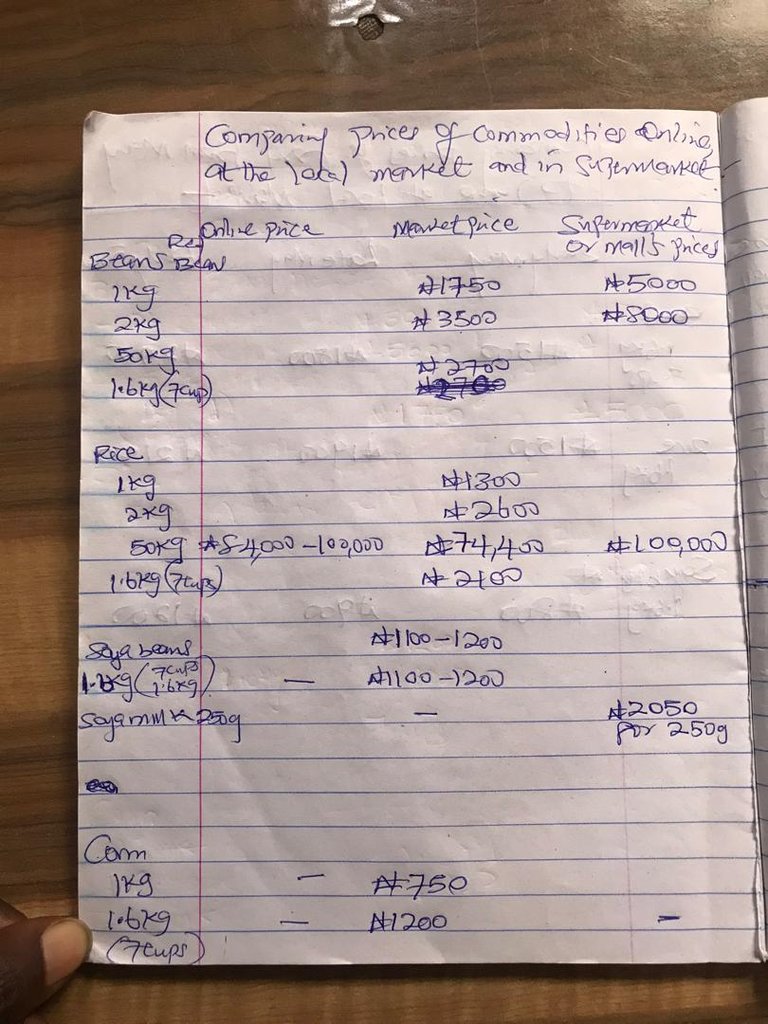 Comparing prices of commodities Online,
at the local market and in Supermarket
Online price Market price Supermarket
or mall's prices
Beans Red Bean
1kg ₦1750 ₦5000
2kg ₦3500 ₦8000
50kg
1.6kg (7cup) ₦2700
Rice
1kg ₦1300
2kg ₦2600
50kg ₦84,000-100,000 ₦74,400 ₦100,000
1.6kg (7cups) ₦2100
Soya beans ₦1100-1200
(7cups 1.6kg) — ₦1100-1200
Soya milk 250g — ₦2050
per 250g
Corn
1kg — ₦750
1.6kg — ₦1200 —
(7cups)